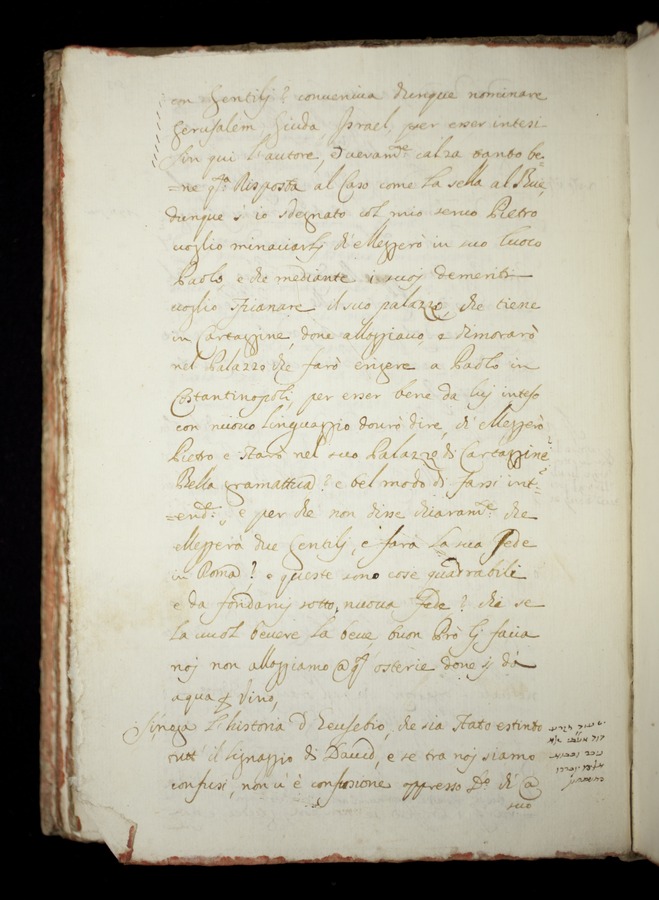 con Gentilj? conveniva dunque nominare
Gerusalem Giuda Israel, per esser intesi
sin qui l'autore, e veram.te calza tanto be=
=ne q.ta Risposta al Caso come la sella al Bue,
dunque s'io sdegnato col mio servo Pietro
voglio minaciarlj di Mezzerò in suo luoco
Paolo, e che mediante i suoj demeriti
voglio spianare il suo palazzo, che tiene
in Cartaggine, dove alloggiavo, e dimorarò
nel Palazzo che farò erigere a Paolo in
Costantinopoli, per esser bene da luj inteso
con nuovo linguaggio dovrò dire, di Mezzerò
Pietro e starò nel suo Palazzo di Cartaggine?
Bella gramattica? e bel modo di farsi int=
=end.e, e per che non disse chiaram.te che
Mezzerà due Gentilj, e farà la sua Sede
in Roma? e queste sono cose quadrabili
e da fondarvj sotto nuova Fede? che se
la vuol bevere la beve, buon prò lj facia
noj non alloggiamo @ q.st osterie dove si dà
aqua p vino,
Si nega l'historia d'Eeusebio, che sia stato estinto
tutt' il lignaggio di David, e se tra noj siamo
confusi, non v'è confusione appresso D.o di @
suo